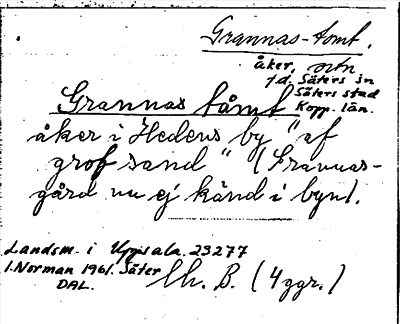 Grannas-tomt.
åker, ortn
f.d. Säters sn
Säters stad
Kopp. län.
Grannas tåmt
åker i Hedens by "af
grof sand" (Grannas-
gård nu ej känd i byn).
Landsm. i Uppsala. 23277
I. Norman 1961. Säter
DAL.
lh. B. (4 ggr.)